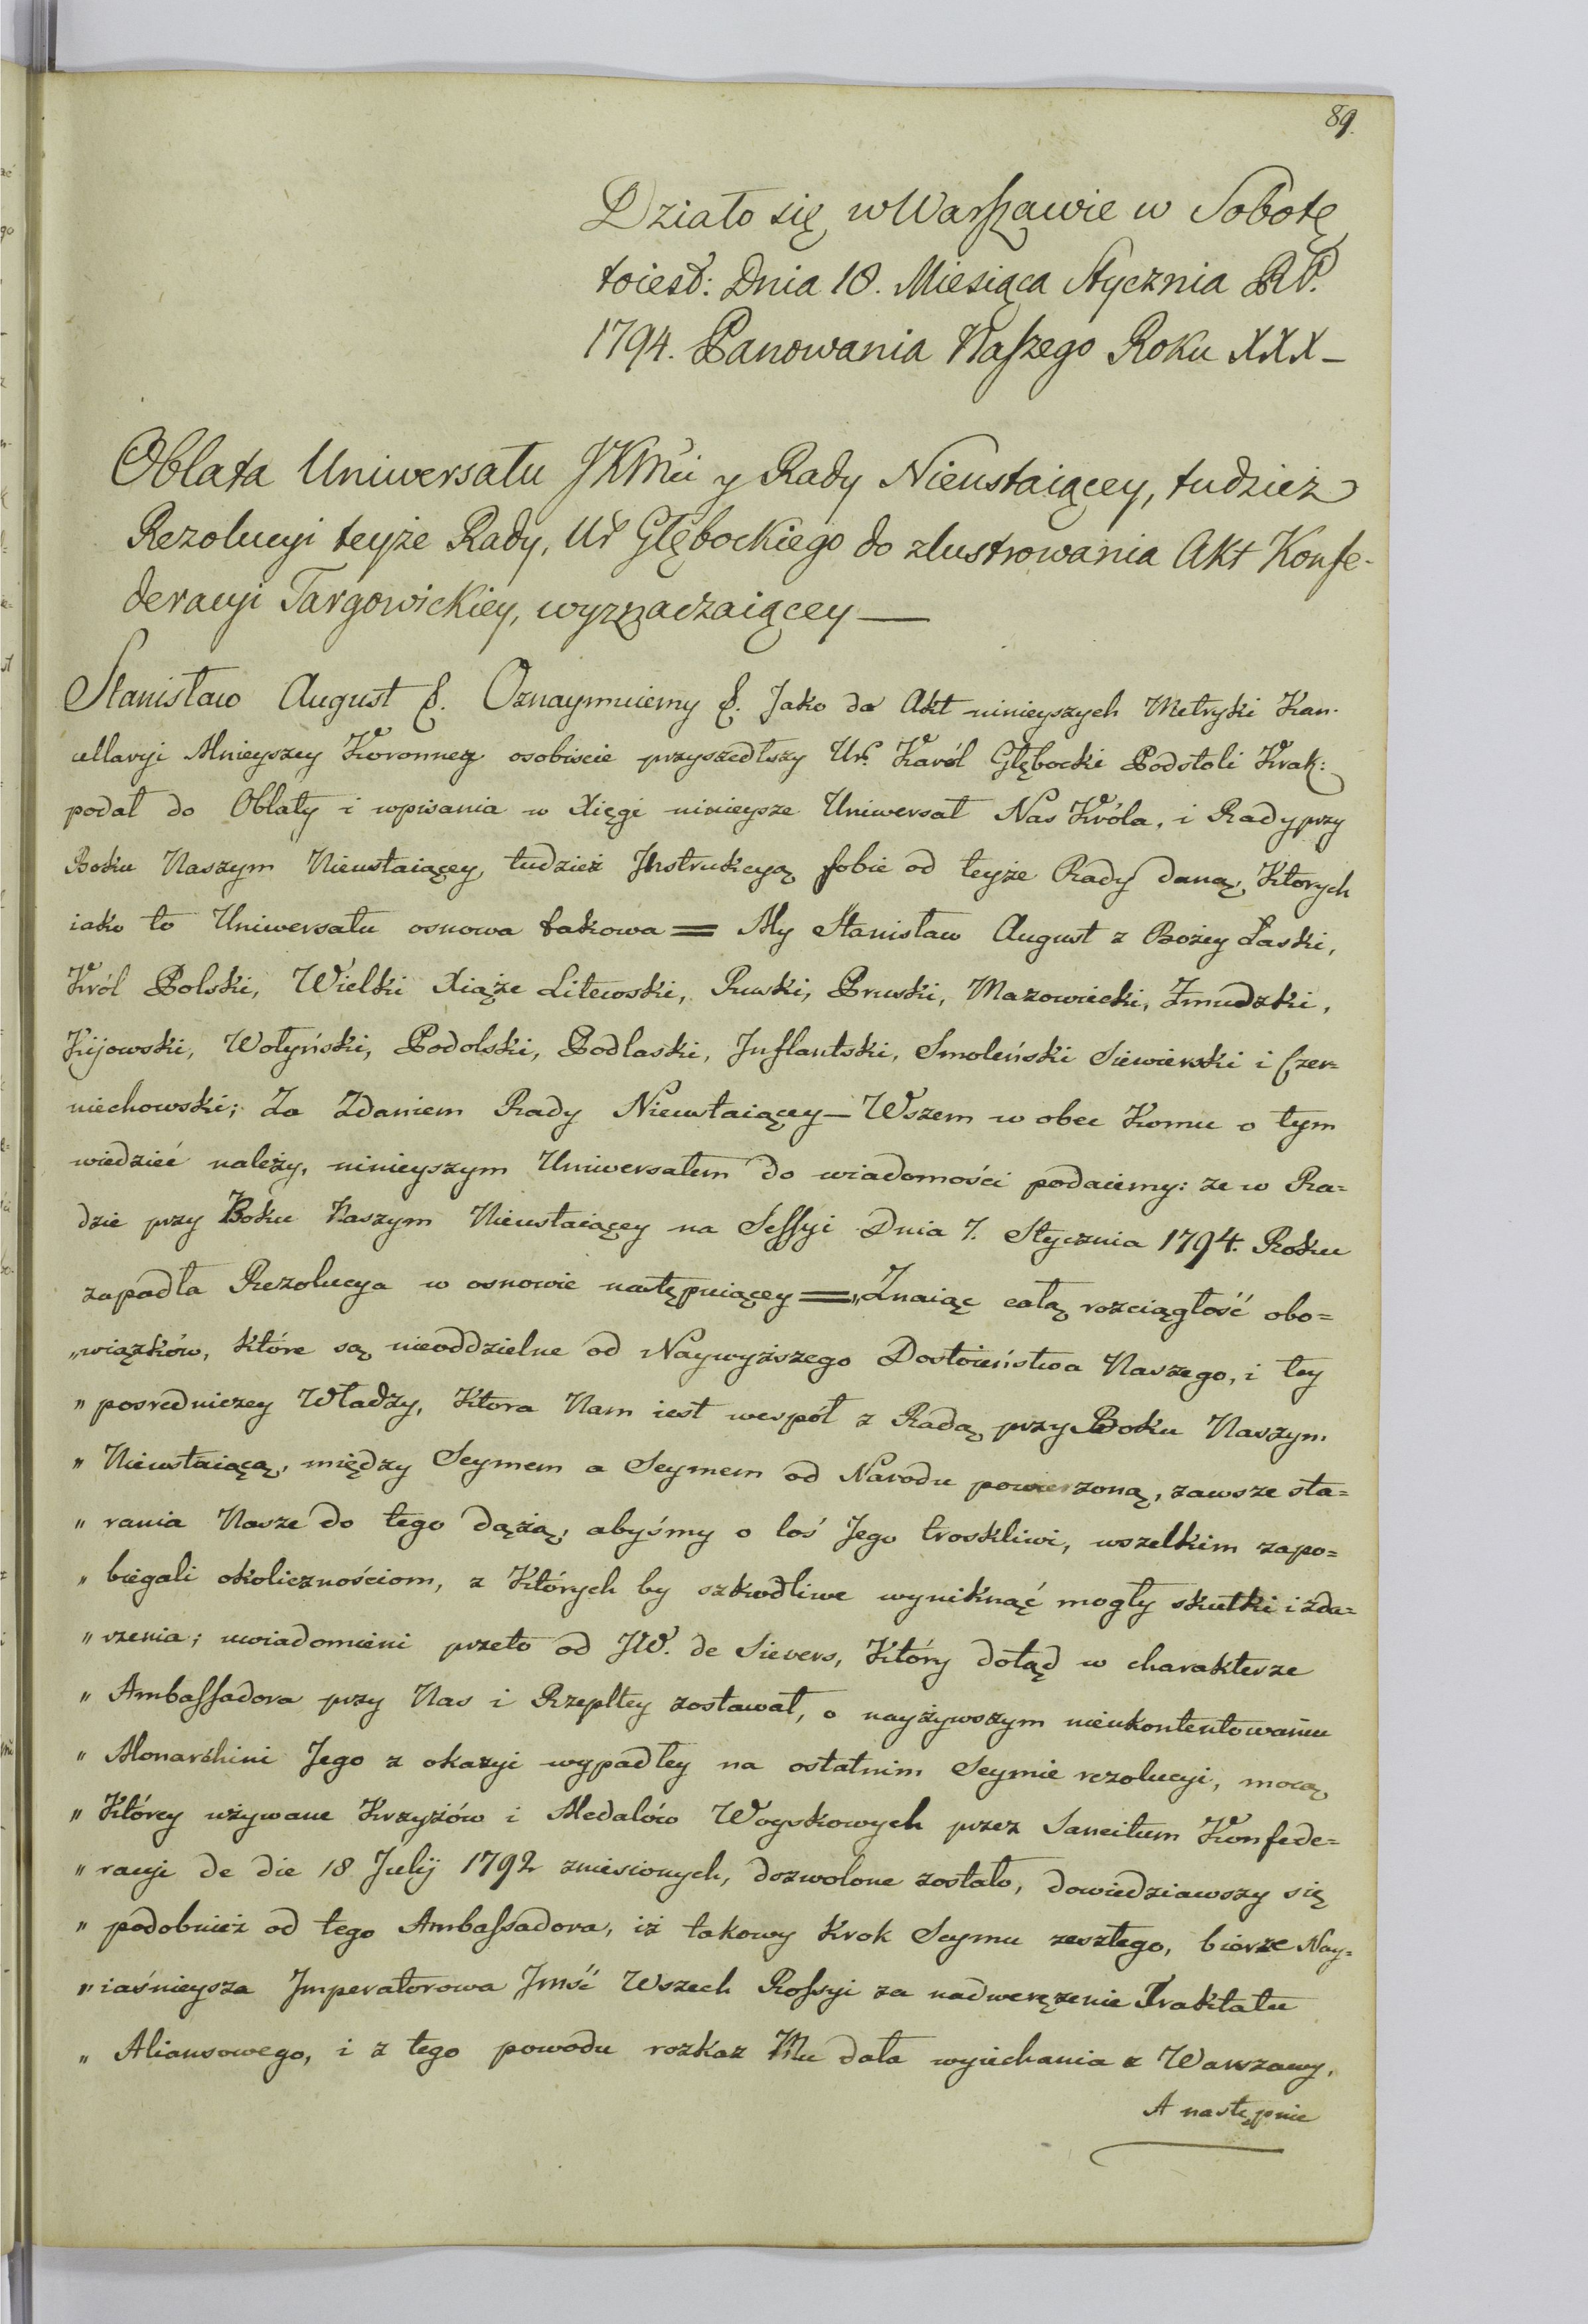 89.
Działo się w Warszawie w Sobotę
toiest: Dnia 18. Miesiąca Stycznia R.P.
1794. Panowania Naszego Roku XXX –
Oblata Uniwersału JKMci y Rady Nieustaiącey, tudzież
Rezolucyi teyże Rady, Ur Głębockiego do zlustrowania Akt Konfe-
deracyi Targowickiey, wyznaczaiącey —
Stanisław August &. Oznaymuiemy &. Jako do Akt ninieyszych Metryki Kan-
cellaryi Mnieyszey Koronney osobiscie przyszedłszy Ur. Karól Głębocki Podstoli Krak:
podał do Oblaty i wpisania w Xięgi ninieysze Uniwersał Nas Króla, i Rady przy
Boku Naszym Nieustaiącey, tudzież Jnstrukcyą sobie od teyże Rady daną, Ktorych
iako to Uniwersału osnowa takowa = My Stanisław August z Bożey Łaski,
Król Polski, Wielki Xiąże Litewski, Ruski, Pruski, Mazowiecki, Żmudzki,
Kijowski, Wołyński, Podolski, Podlaski, Jnflantski, Smoleński Siewierski i Czer=
niechowski; Za Zdaniem Rady Nieustaiącey – Wszem w obec Komu o tym
wiedzieć należy, ninieyszym Uniwersałem do wiadomości podaiemy: ze w Ra=
dzie przy Boku Naszym Nieustaiącey na Sessyi Dnia 7. Stycznia 1794. Roku
zapadła Rezolucya w osnowie następuiącey = „Znaiąc całą rozciągłość obo=
„wiązków, które są nieoddzielne od Naywyższego Dostoieństwa Naszego, i tey
„ posredniczey Władzy, Ktora Nam iest wespół z Radą przy Boku Naszym
„ Nieustaiącą, między Seymem a Seymem od Narodu powierzoną, zawsze sta=
„ rania Nasze do tego dążą, abyśmy o loś Jego troskliwi, wszelkim zapo=
„ biegali okolicznościom, z Których by szkodliwe wyniknąć mogły skutki i zda=
„ rzenia; uwiadomieni przeto od JW. de Sievers, Który dotąd w charakterze
„ Ambassadora przy Nas i Rzepltey zostawał, o nayżywszym nieukontentowaniu
„ Monarchini Jego z okazyi wypadłey na ostatnim Seymie rezolucyi, mocą
„ Którey używane Krzyżów i Medalów Woyskowych przez Sancitum Konfede=
„ racyi de die 18 Julij 1792 zniesionych, dozwolone zostało, dowiedziawszy się
„ podobnież od tego Ambassadora, iż takowy Krok Seymu zeszłego, bierze Nay=
„ iaśnieysza Jmperatorowa Jmść Wszech Rossyi za nadwerężenie Traktatu
„ Aliansowego, i z tego powodu rozkaz Mu dała wyiechania z Warszawy,
A następnie